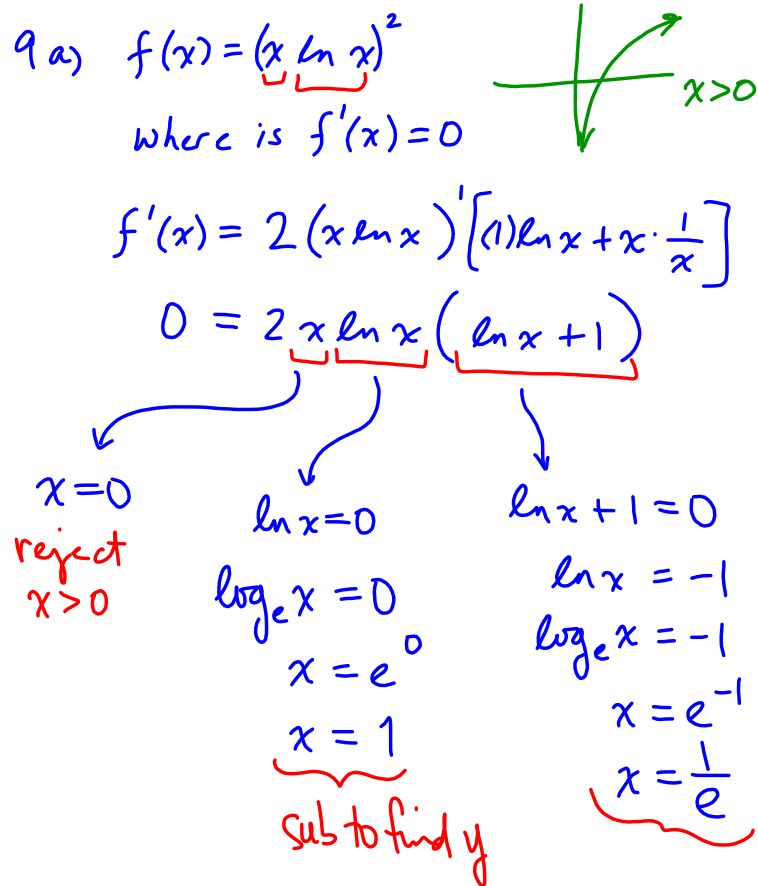 9 a) f(x) = (x ln x)²
x>0
where is f'(x) = 0
f'(x) = 2(x ln x)¹[(1)ln x + x · 1/x]
0 = 2x ln x (ln x + 1)
x = 0
reject
x > 0
ln x = 0
logₑ x = 0
x = e⁰
x = 1
sub to find y
ln x + 1 = 0
ln x = -1
logₑ x = -1
x = e⁻¹
x = 1/e